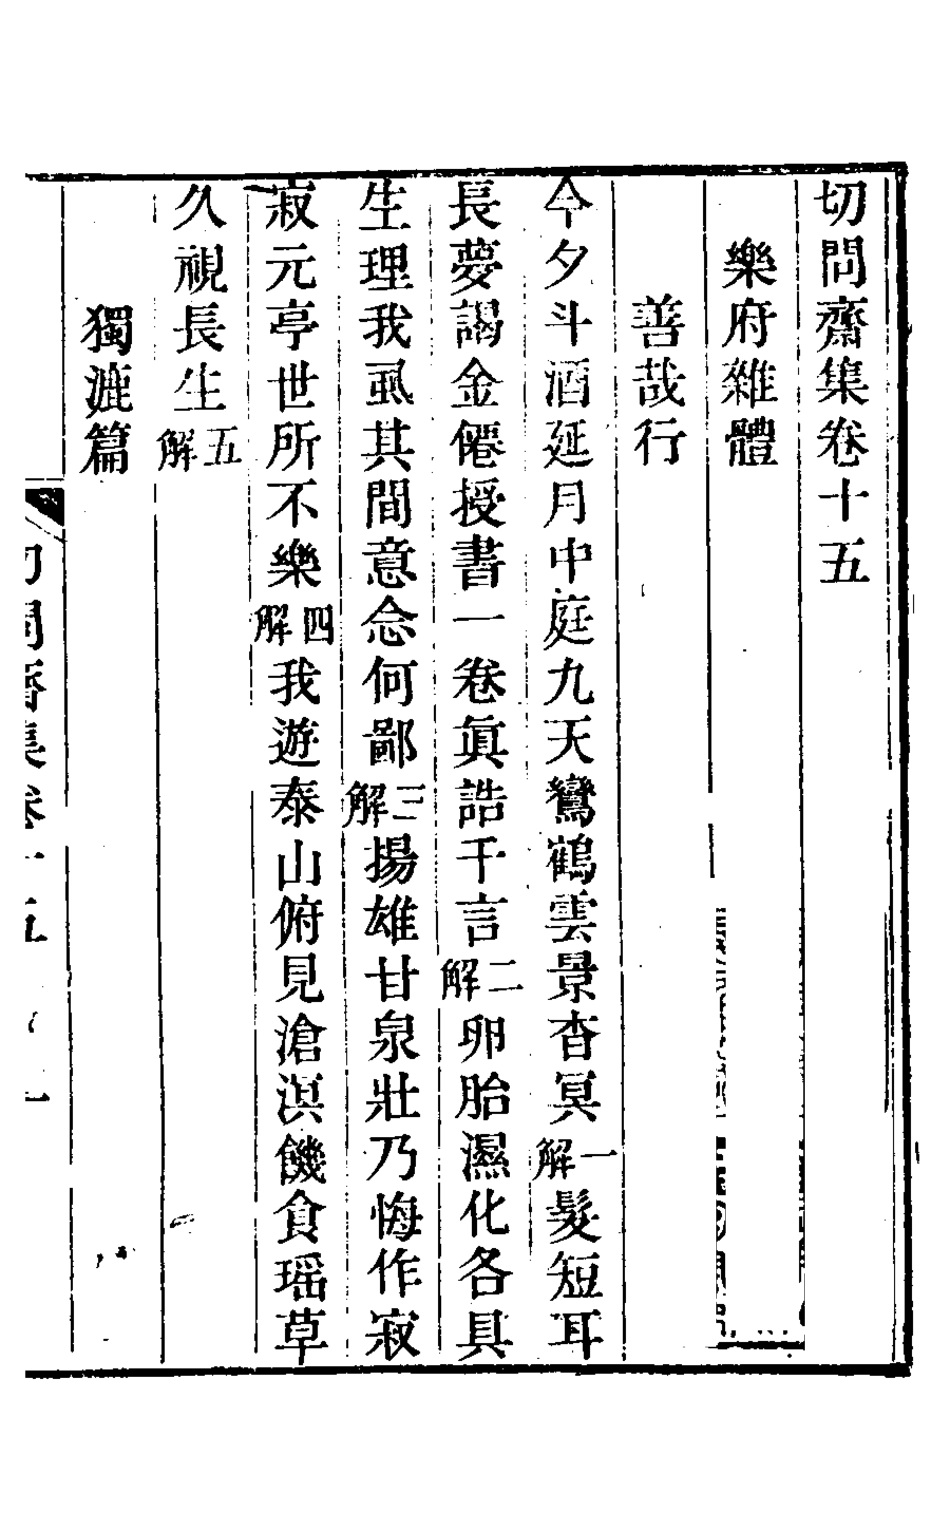 切問齋集卷十五
樂府雜體
善哉行
今夕斗酒延月中庭九天鸞鶴雲景杳冥一解髮短耳
長夢謁金僊授書一卷眞誥千言二解卵胎濕化各具
生理我虱其間意念何鄙三解揚雄甘泉壯乃悔作寂
寂元亭世所不樂四解我遊泰山俯見滄溟饑食瑶草
久視長生五解
獨漉篇
切問齋集卷十五